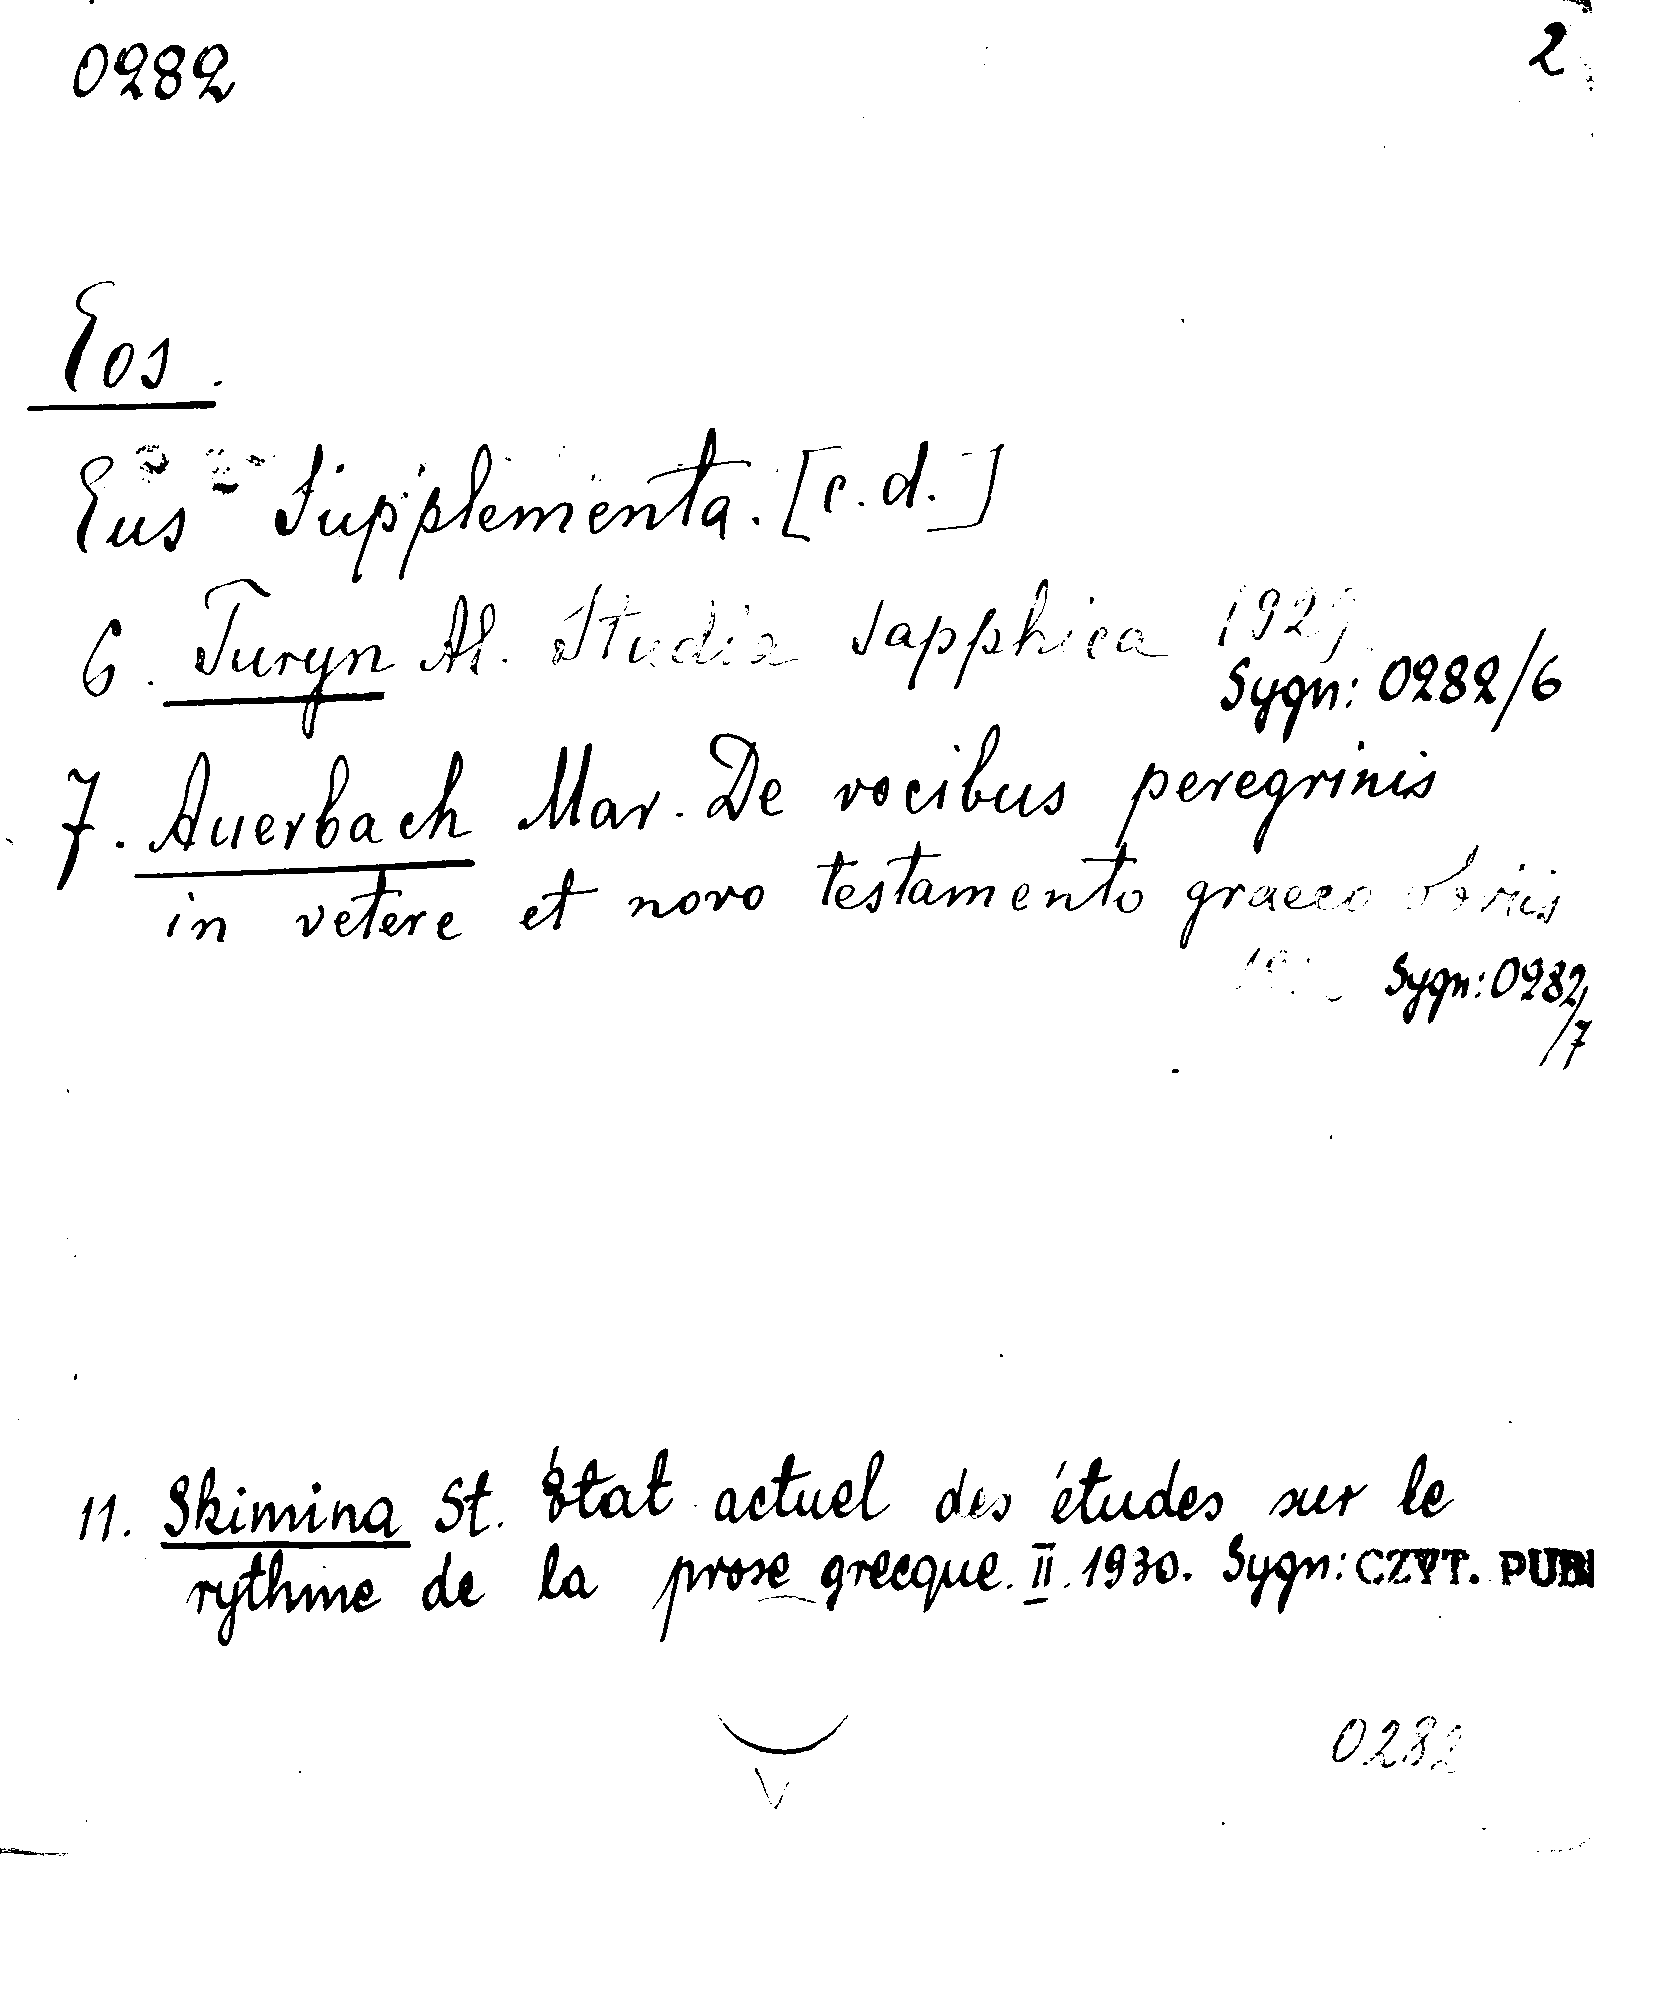 0282 2
Eos.
Eus Supplementa. [c.d.]
6. Turyn Al. Studia sapphica 1929
Sygn: 0282/6
7. Auerbach Mar. De vocibus peregrinis
in vetere et novo testamento graeco
Sygn: 0282
/7
11. Skimina St. État actuel des études sur le
rythme de la prose grecque. II. 1930. Sygn: CZYT. PUB
0282